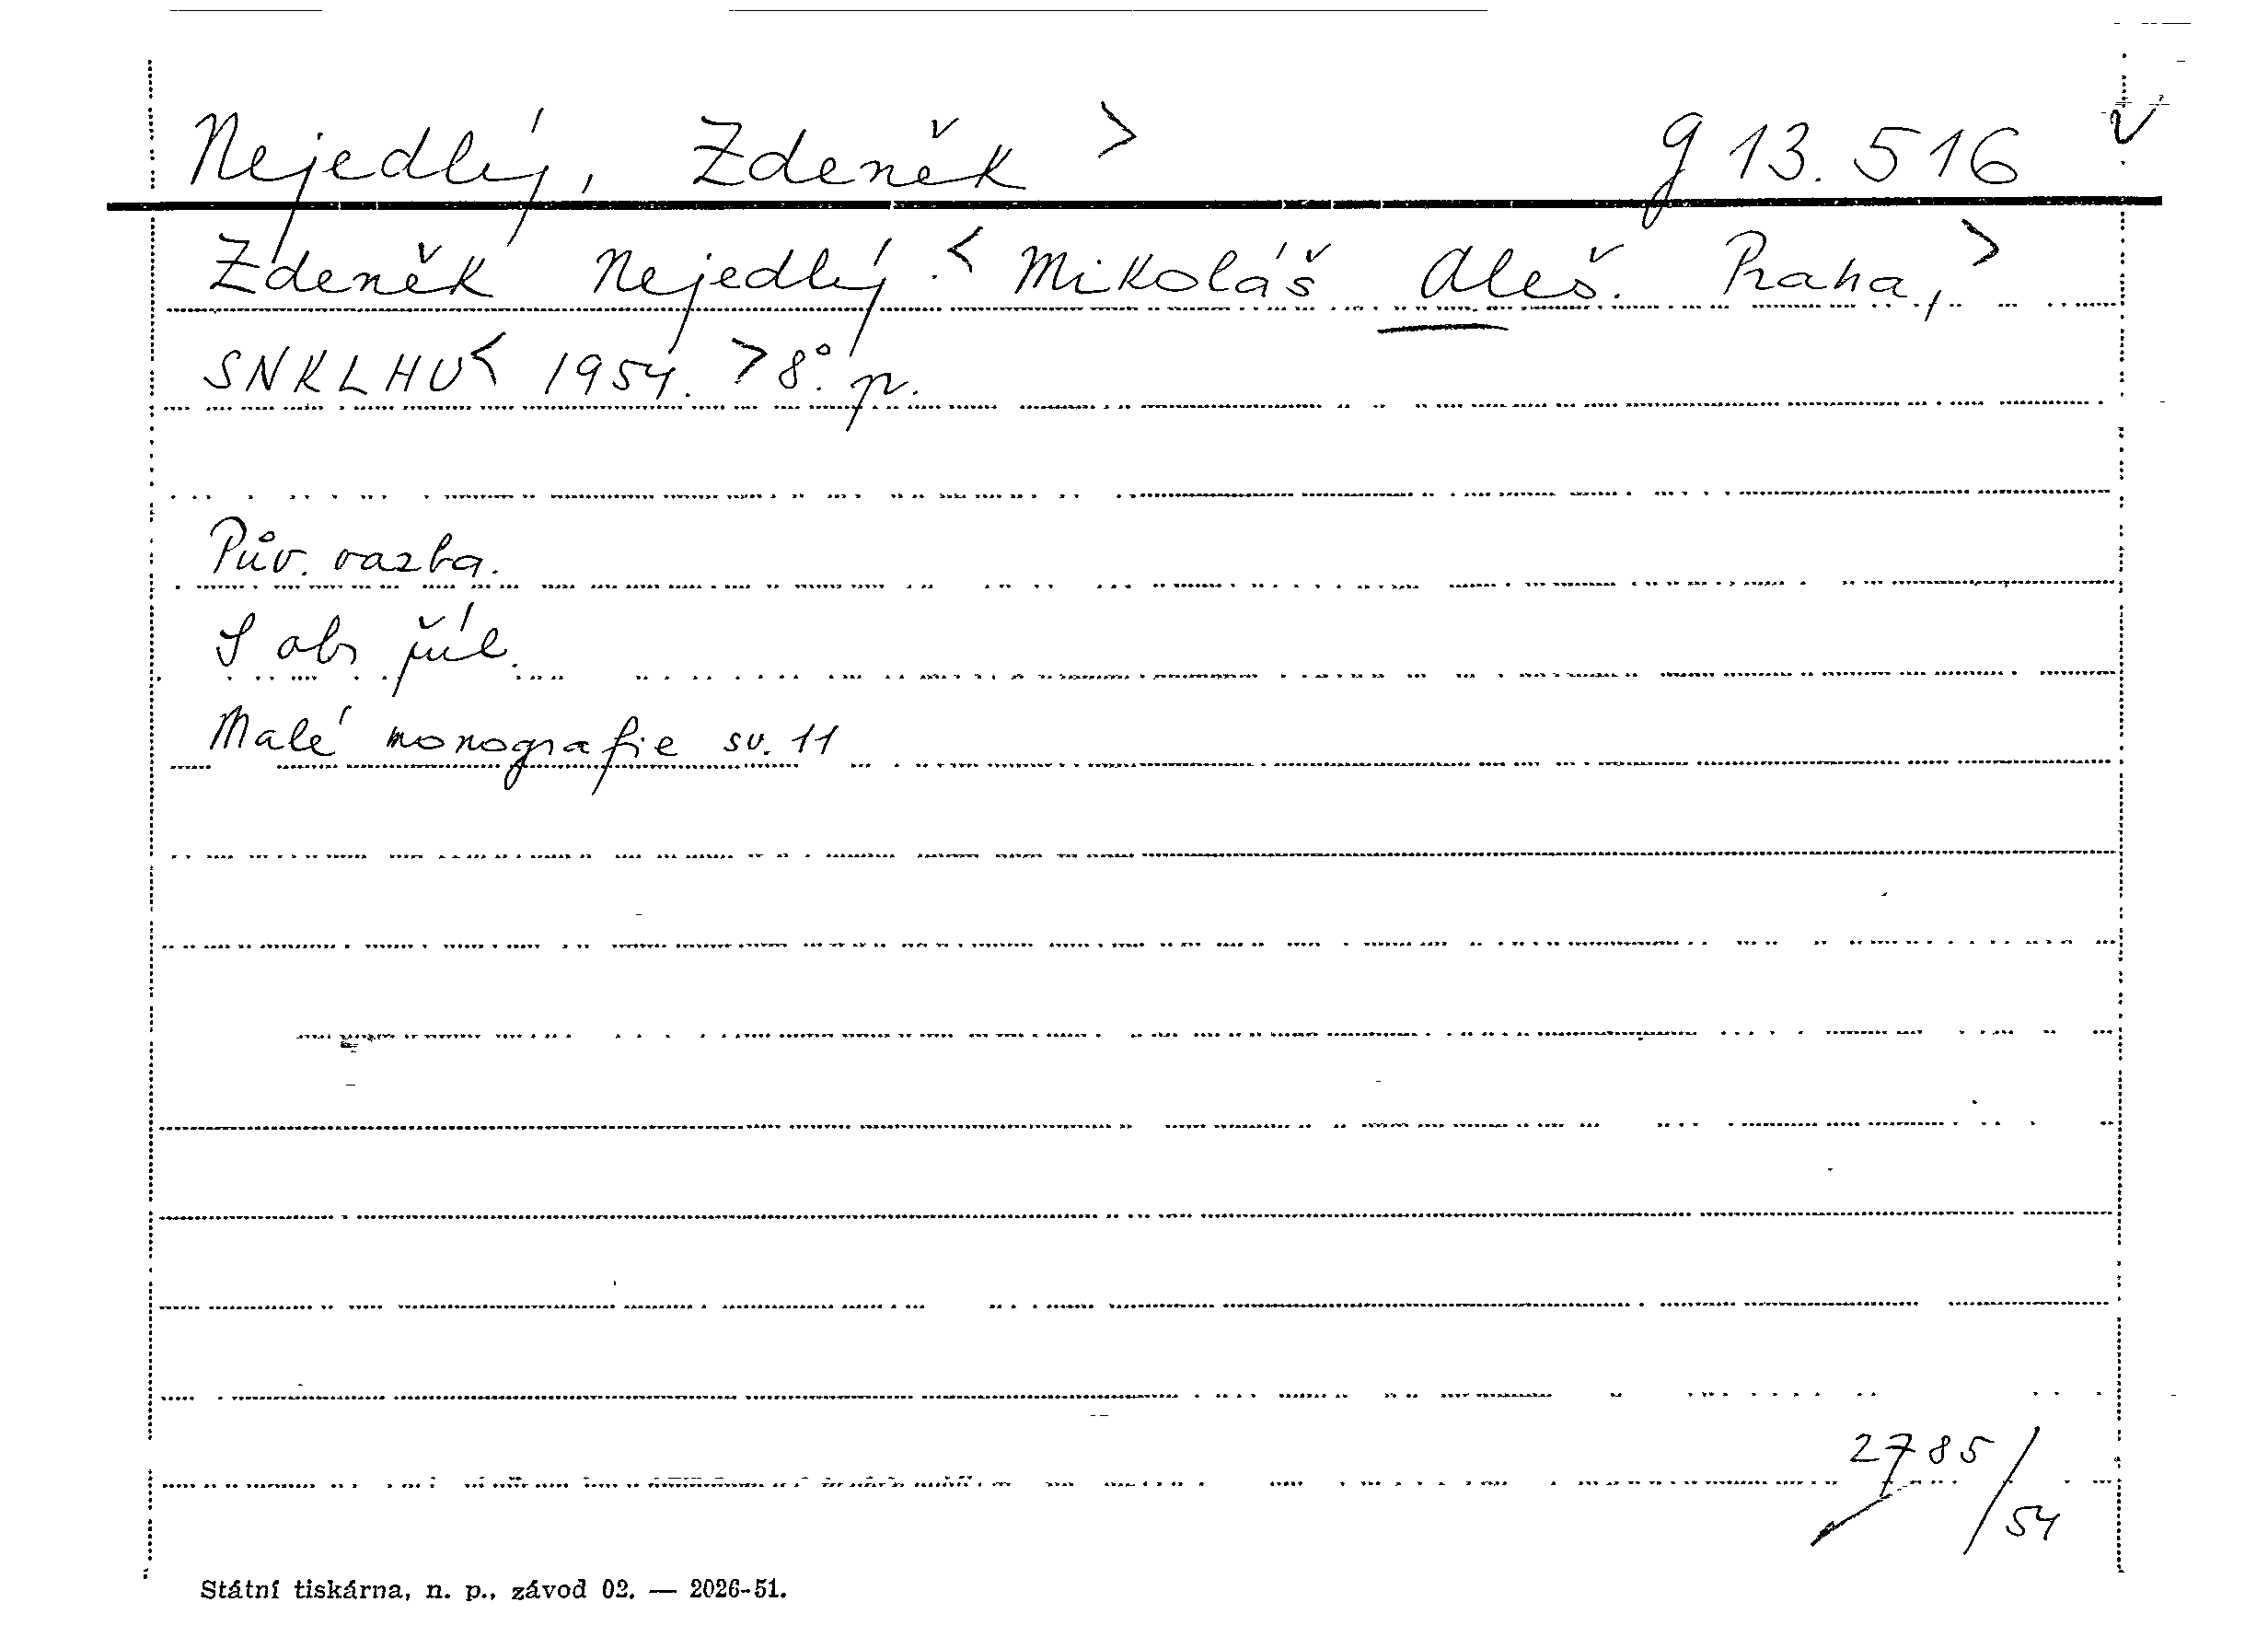 Nejedlý, Zdeněk > g 13.516 v
Zdeněk Nejedlý. < Mikoláš Aleš. Praha, >
SNKLHU < 1954. > 8°. p.
Pův. vazba.
S obr příl.
Malé monografie sv. 11
2785/54
Státní tiskárna, n. p., závod 02. — 2026-51.